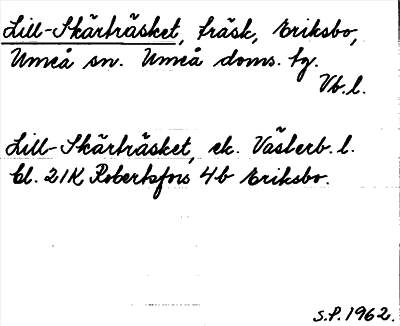 Lill-Skärträsket, träsk, Eriksbo,
Umeå sn. Umeå doms. tg.
Vb.l.
Lill-Skärträsket, ek. Västerb. l.
bl. 21K Robertsfors 4b Eriksbo.
S.P. 1962.